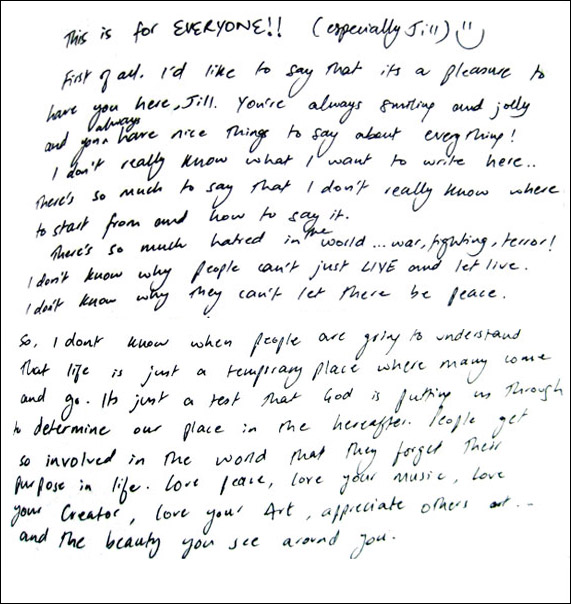 This is for EVERYONE!! (especially Jill)
First of all. I'd like to say that its a pleasure to
have you here, Jill. You're always smiling and jolly
and you always have nice things to say about everything!
I don't really know what I want to write here..
There's so much to say that I don't really know where
to start from and how to say it.
There's so much hatred in the world... war, fighting, terror!
I don't know why people can't just LIVE and let live.
I don't know why they can't let there be peace.
So, I dont know when people are going to understand
that life is just a temporary place where many come
and go. Its just a test that God is putting us through
to determine our place in the hereafter. People get
so involved in the world that they forget their
purpose in life. Love peace, love your music, love
your Creator, love your Art, appreciate others art...
and the beauty you see around you.